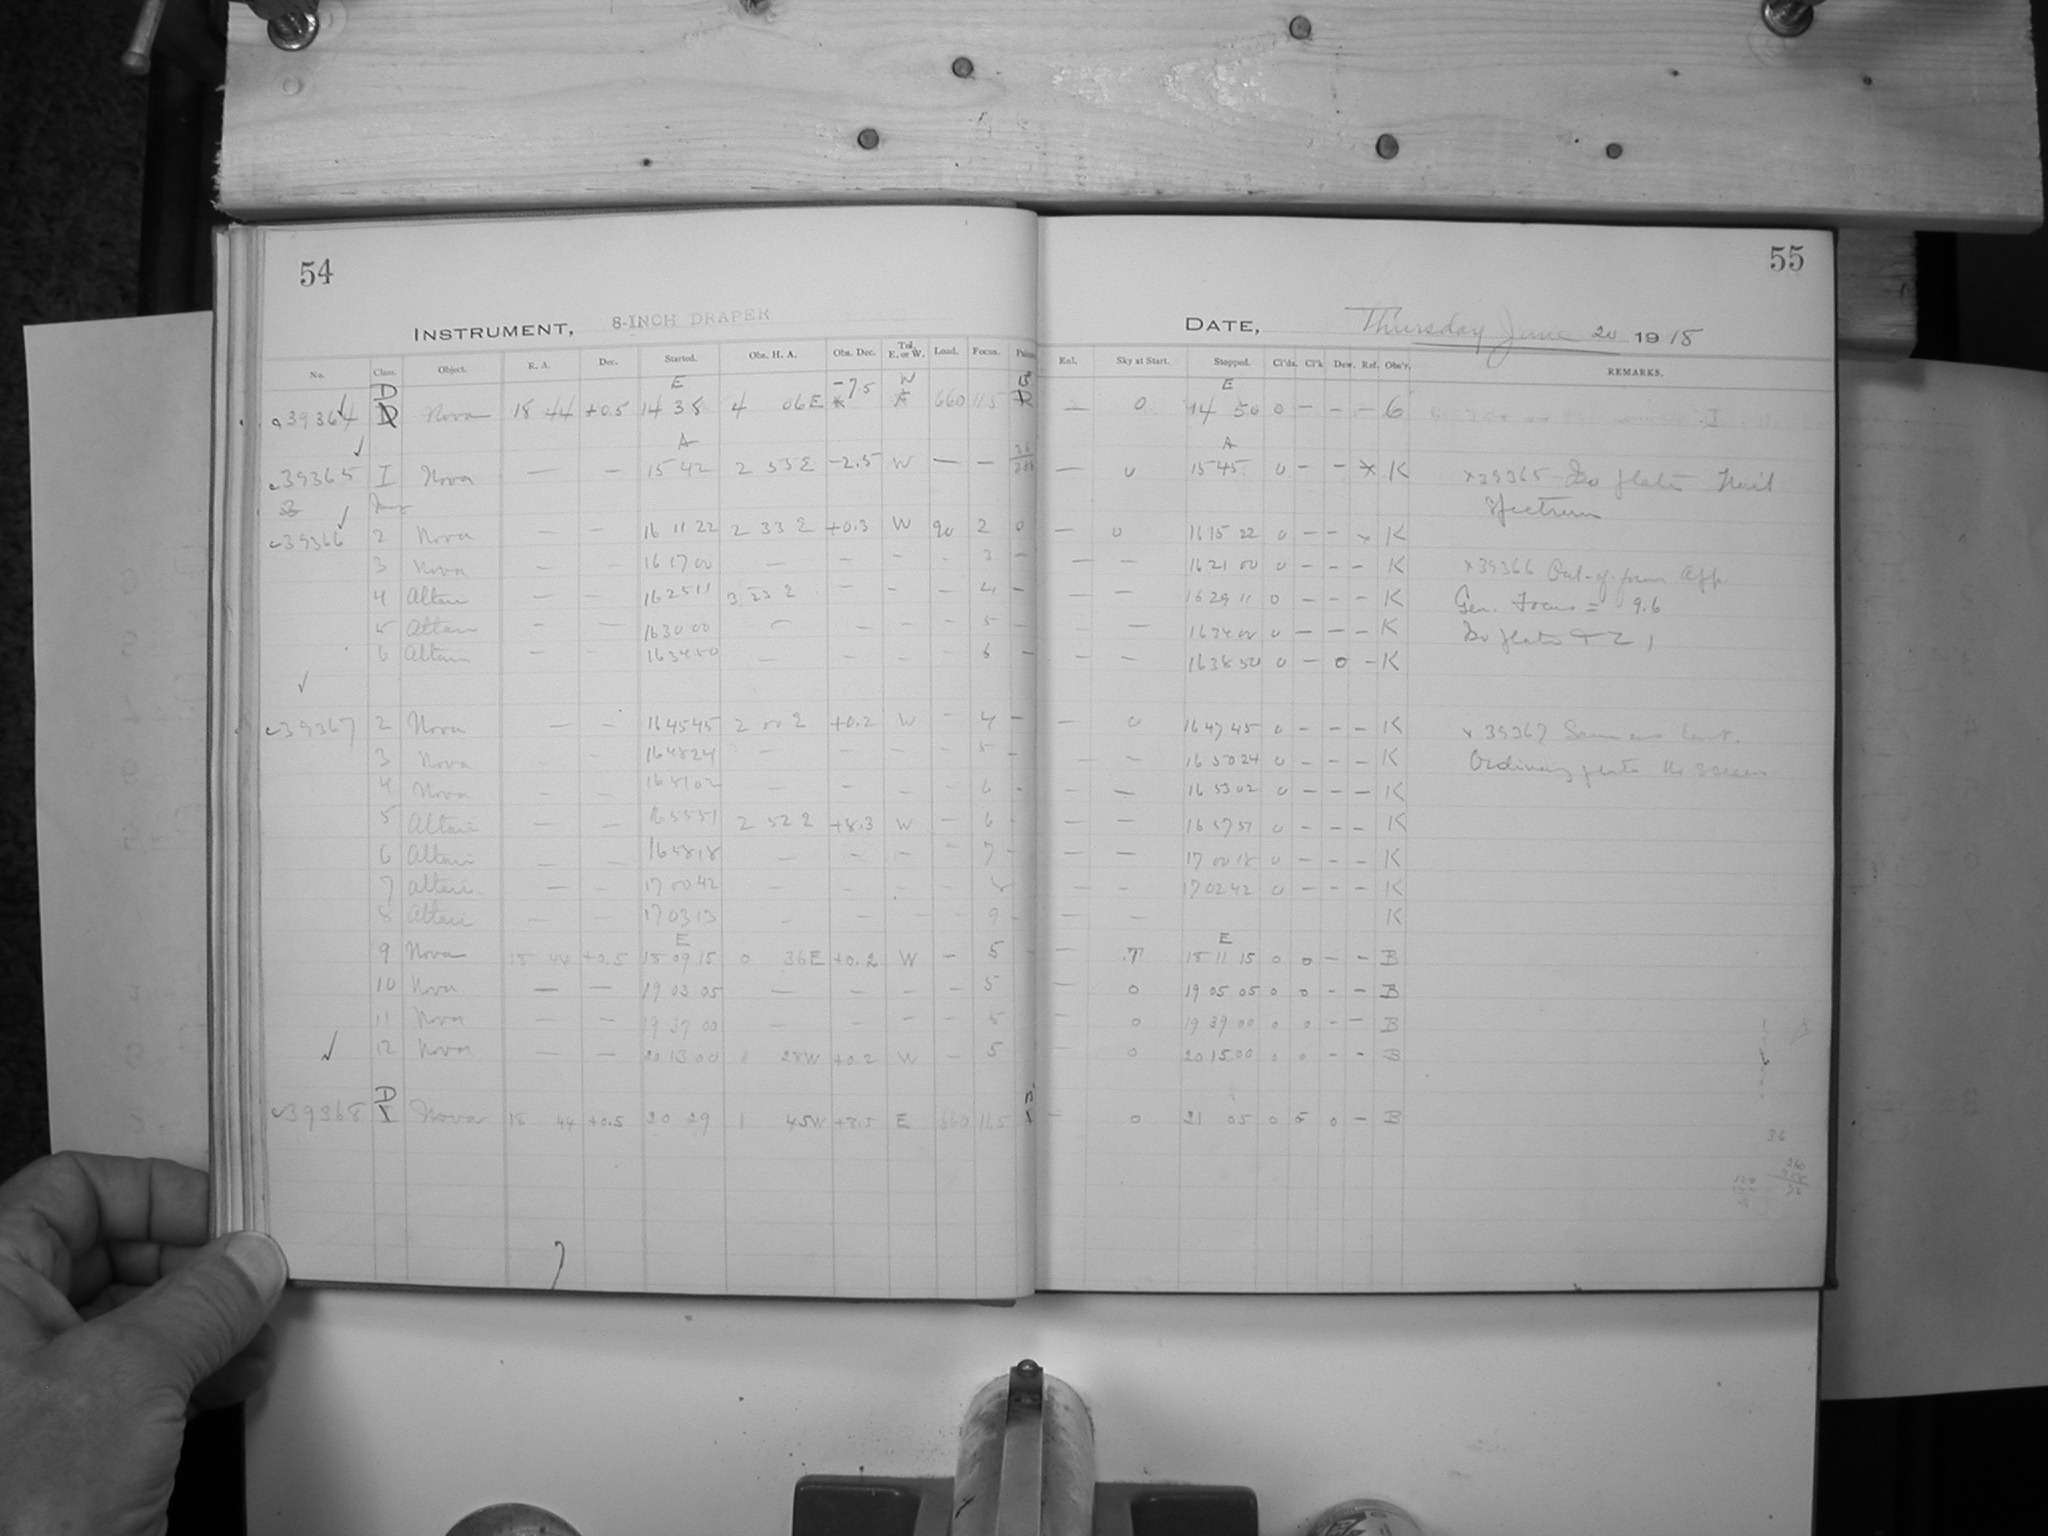 54
55
INSTRUMENT, 8-INCH DRAPER
DATE, Thursday June 20 1918
No. Class. Object. R. A. Dec. Started. Obs. H. A. Obs. Dec. Tel. E. or W. Load. Focus. Rul. Sky at Start. Stopped. Cl'ds. Cl'k Dew. Ref. Obs'r. REMARKS.
D E -7.5 W B E
39364 Nova 18 44 +0.5 14 38 4 06 E 660 11.5 — 0 14 50 0 — — — G
A A
39365 I Nova — — 15 42 2 53 E -2.5 W — — — 0 15 45 0 — — x K x39365 Iso plate Nail
Spectrum
39366 2 Nova — — 16 11 22 2 33 E +0.3 W 90 2 0 — 0 16 15 22 0 — — x K
3 Nova — — 16 17 00 — — — — 3 — — — 16 21 00 0 — — — K x39366 Out-of-focus App.
4 Altair — — 16 25 11 3 23 E — — — 4 — — — 16 29 11 0 — — — K Gen. Focus = 9.6
5 Altair — — 16 30 00 — — — — 5 — — — 16 34 00 0 — — — K Iso plate
6 Altair — — 16 34 50 — — — — 6 — — — 16 38 50 0 — 0 — K
39367 2 Nova — — 16 45 45 2 00 E +0.2 W — 4 — — 0 16 47 45 0 — — — K x 39367 Same as last.
3 Nova — — 16 48 24 — — — — 5 — — — 16 50 24 0 — — — K Ordinary plate No screen
4 Nova — — 16 51 02 — — — — 6 — — — 16 53 02 0 — — — K
5 Altair — — 16 55 51 2 52 E +8.3 W — 6 — — 16 57 51 0 — — — K
6 Altair — — 16 58 18 — — — — 7 — — — 17 00 18 0 — — — K
7 Altair — — 17 00 42 — — — — 8 — — 17 02 42 0 — — — K
8 Altair — — 17 03 13 — — — — 9 — — — K
E E
9 Nova 18 44 +0.5 18 09 15 0 36 E +0.2 W — 5 — — T 18 11 15 0 0 — — B
10 Nova — — 19 03 05 — — — — 5 — 0 19 05 05 0 0 — — B
11 Nova — — 19 37 00 — — — — 5 — 0 19 39 00 0 0 — — B
12 Nova — — 20 13 00 1 28 W +0.2 W — 5 0 20 15 00 0 0 — — B
D
39368 I Nova 18 44 +0.5 20 29 1 45 W +8.5 E 660 11.5 — 0 21 05 0 5 0 — B
36